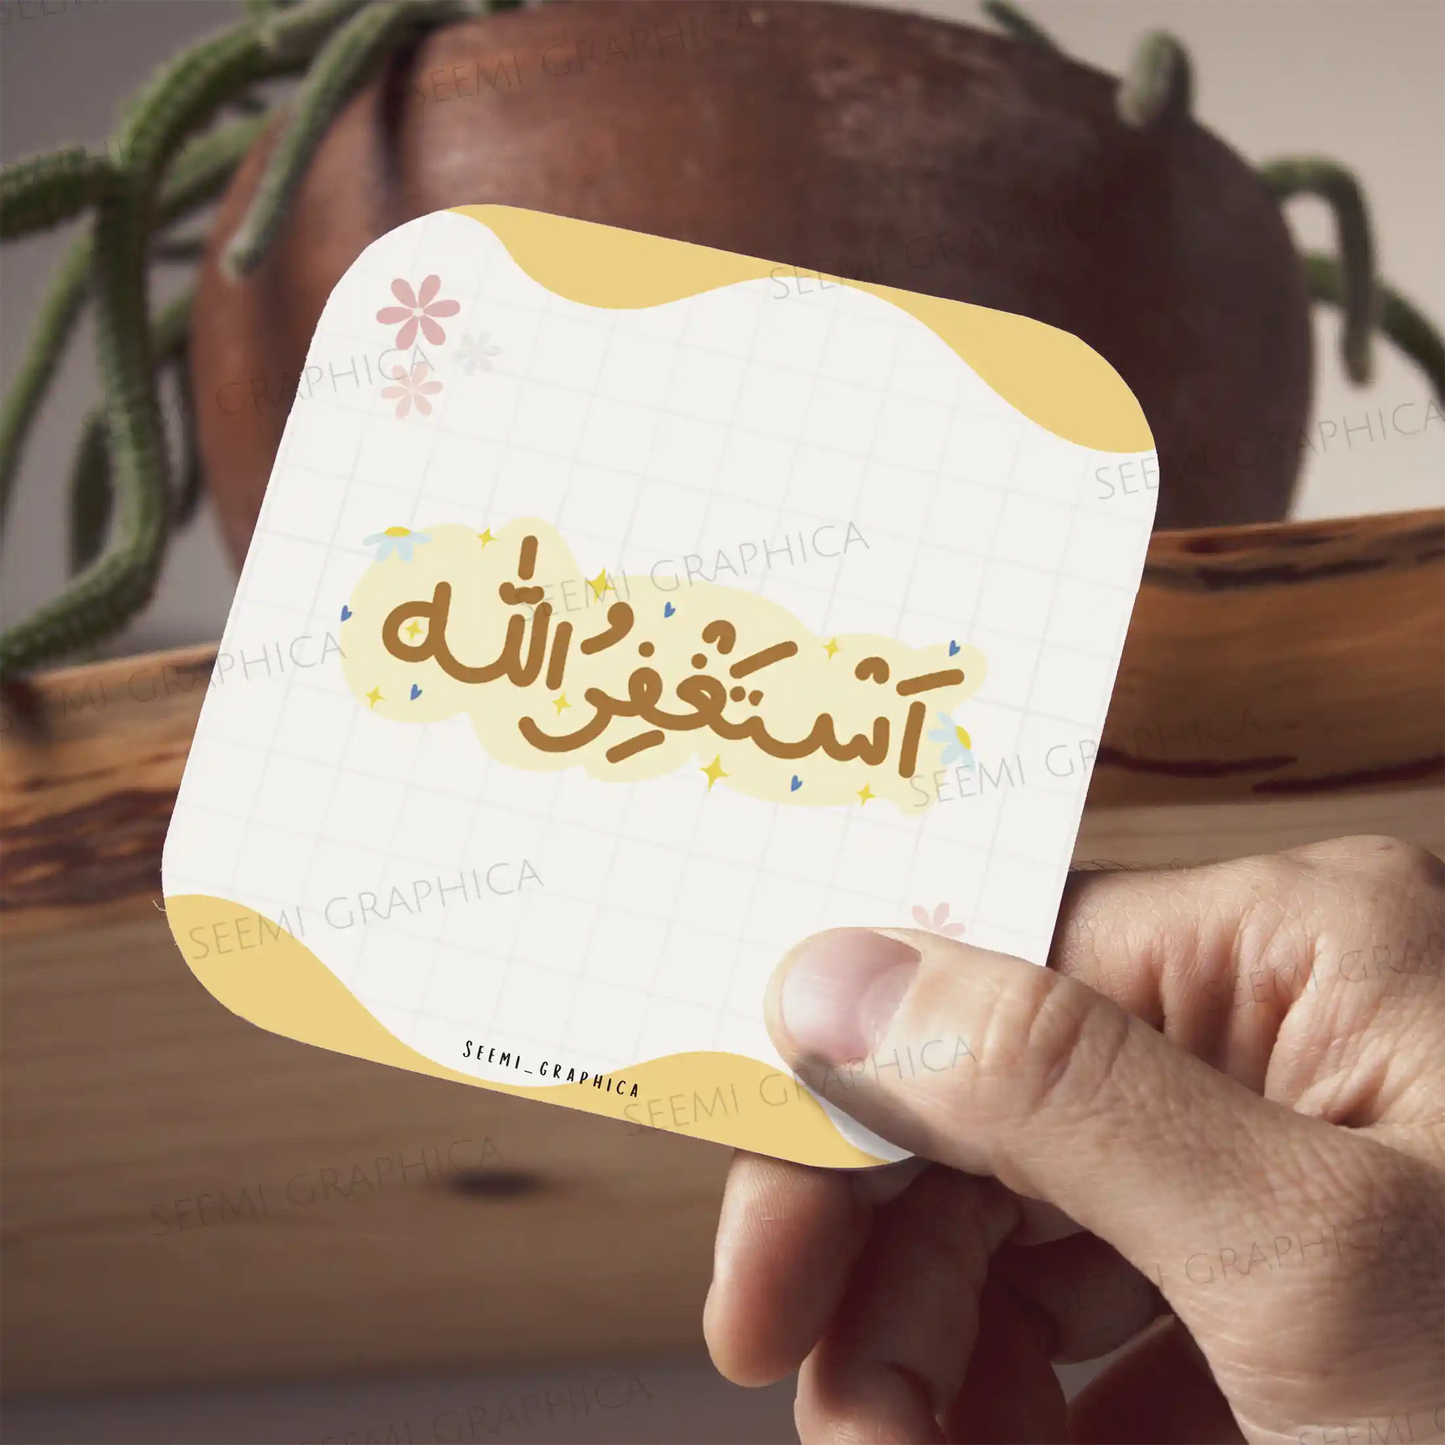 SEEMI GRAPHICA
SEEMI GRAPHICA
GRAPHICA
SEEMI GRAPHICA
SEEMI GRAPHICA
اَسْتَغْفِرُ اللّٰه
SEEMI GRAPHICA
SEEMI GRAPHICA
SEEMI GRAPHICA
SEEMI_GRAPHICA
SEEMI GRAPHICA
SEEMI GRAPHICA
SEEMI GRAPHICA